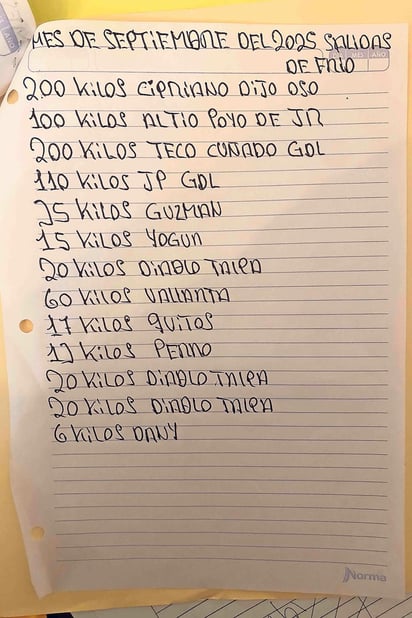 MES DE SEPTIEMBRE DEL 2025 SALIDAS
DE FRIO
MES AÑO
200 KILOS CIPRIANO DIJO OSO
100 KILOS ALTIO POYO DE JR
200 KILOS TECO CUNADO GDL
110 KILOS JP GDL
25 KILOS GUZMAN
15 KILOS YOGUR
20 KILOS DIABLO TALPA
60 KILOS VALLARTA
17 KILOS QUITOS
13 KILOS PERRO
20 KILOS DIABLO TALPA
20 KILOS DIABLO TALPA
6 KILOS DANY
Norma